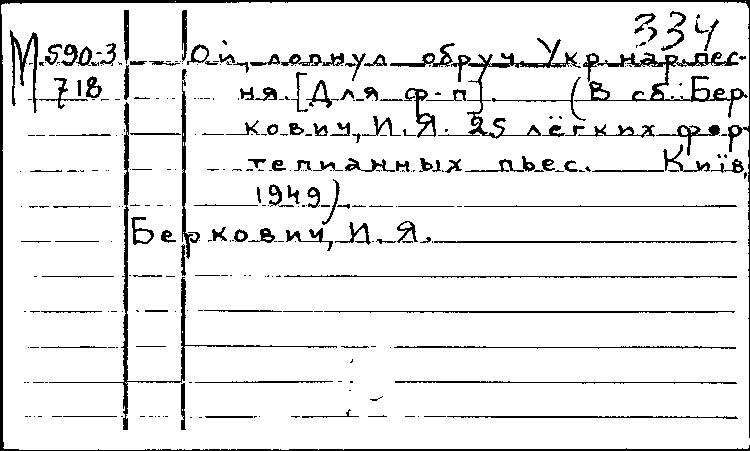 334
М 590-3 Ой, лопнул обруч. Укр. нар. пес-
718 ня. [Для ф-п]. (В сб.: Бер-
кович, И. Я. 25 лёгких фор-
тепианных пьес. Київ,
1949).
Беркович, И. Я.